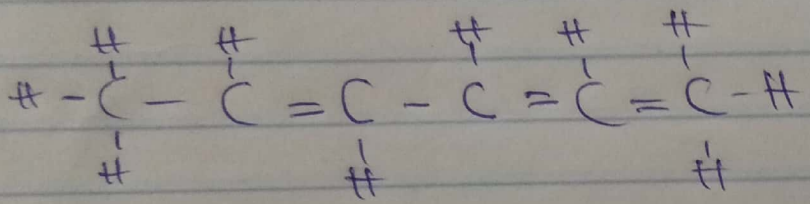 H H H H H
H - C - C = C - C = C = C - H
H H H